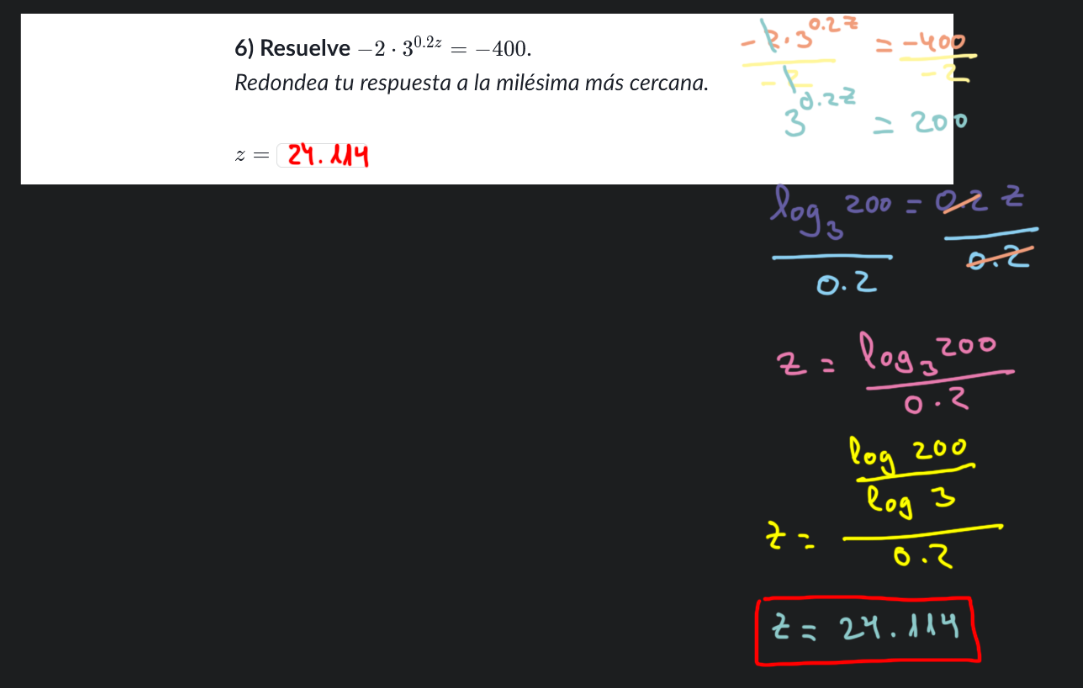 6) Resuelve −2 · 3^{0.2z} = −400.
Redondea tu respuesta a la milésima más cercana.
z = 24.114
-2·3^{0.2z} = -400
-2 -2
3^{0.2z} = 200
log₃ 200 = 0.2 z
0.2 0.2
z = log₃ 200
0.2
log 200
log 3
z =
0.2
z = 24.114